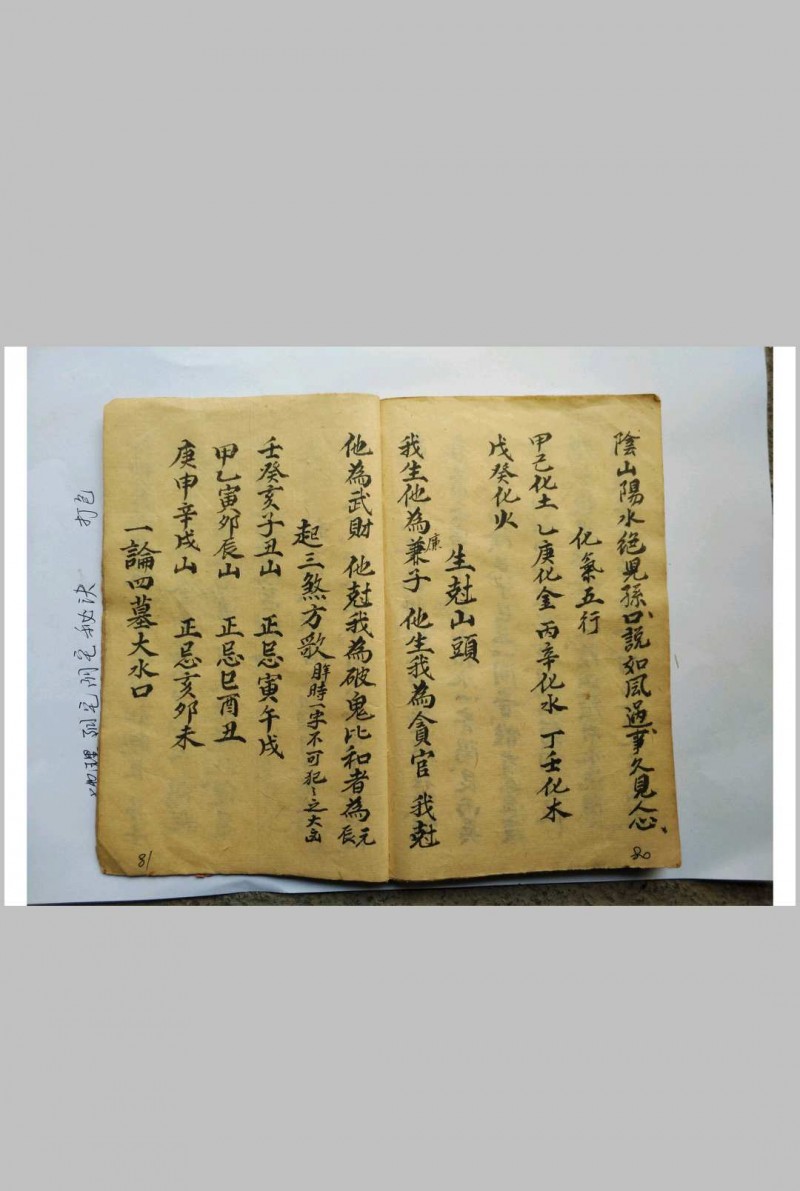 陰山陽水絕兒孫口說如風過事久見人心、
化氣五行
甲己化土 乙庚化金 丙辛化水 丁壬化木
戊癸化火
生尅山頭
我生他為兼子 他生我為貪官 我尅
廉
他為武財 他尅我為破鬼比和者為元辰
起三煞方歌 時一字不可犯〻之大凶
壬癸亥子丑山 正忌寅午戌
甲乙寅卯辰山 正忌巳酉丑
庚申辛戌山 正忌亥卯未
一論四墓大水口
80
81
地理阴宅阳宅秘诀 打包